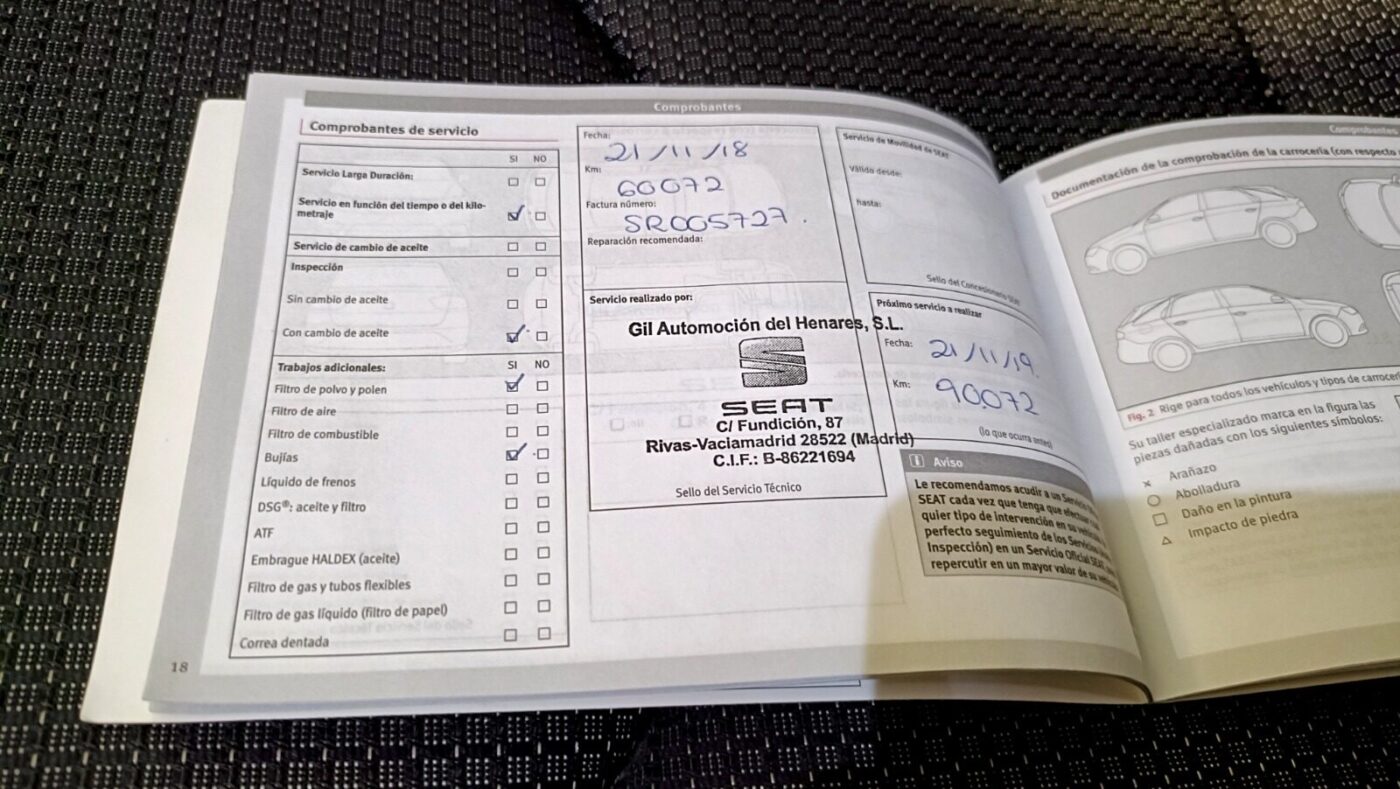 Comprobantes
Comprobantes de servicio
SI NO
Servicio Larga Duración:
Servicio en función del tiempo o del kilo-
metraje
Servicio de cambio de aceite
Inspección
Sin cambio de aceite
Con cambio de aceite
Trabajos adicionales: SI NO
Filtro de polvo y polen
Filtro de aire
Filtro de combustible
Bujías
Líquido de frenos
DSG®: aceite y filtro
ATF
Embrague HALDEX (aceite)
Filtro de gas y tubos flexibles
Filtro de gas líquido (filtro de papel)
Correa dentada
18
Fecha:
21/11/18
Km:
60072
Factura número:
SR005727.
Reparación recomendada:
Servicio realizado por:
Gil Automoción del Henares, S.L.
SEAT
C/ Fundición, 87
Rivas-Vaciamadrid 28522 (Madrid)
C.I.F.: B-86221694
Sello del Servicio Técnico
Servicio de Movilidad de SEAT
Válido desde:
hasta:
Sello del Concesionario SEAT
Próximo servicio a realizar
Fecha: 21/11/19.
Km: 90.072
(lo que ocurra antes)
Aviso
Le recomendamos acudir a un
SEAT cada vez que tenga que efectuar
quier tipo de intervención en su
perfecto seguimiento de los Servicios
Inspección) en un Servicio Oficial SEAT,
repercutir en un mayor valor de su
Documentación de la comprobación de la carrocería (con respecto
Fig. 2 Rige para todos los vehículos y tipos de carrocería
Su taller especializado marca en la figura las
piezas dañadas con los siguientes símbolos:
Arañazo
Abolladura
Daño en la pintura
Impacto de piedra